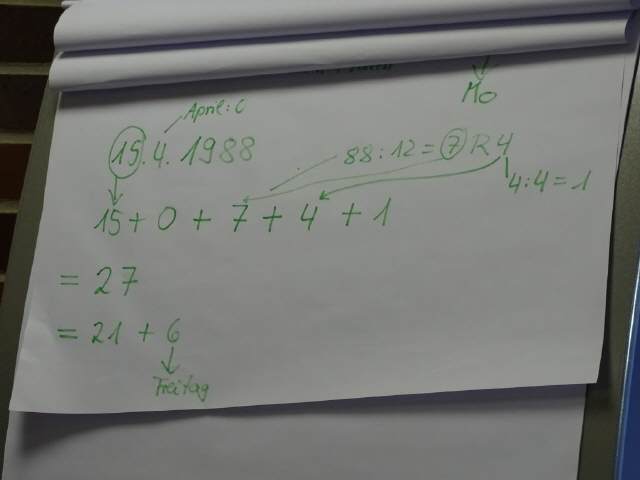 Mo
April: 0
15.4.1988
88:12=7 R4
4:4=1
15+0+7+4+1
=27
=21+6
Freitag